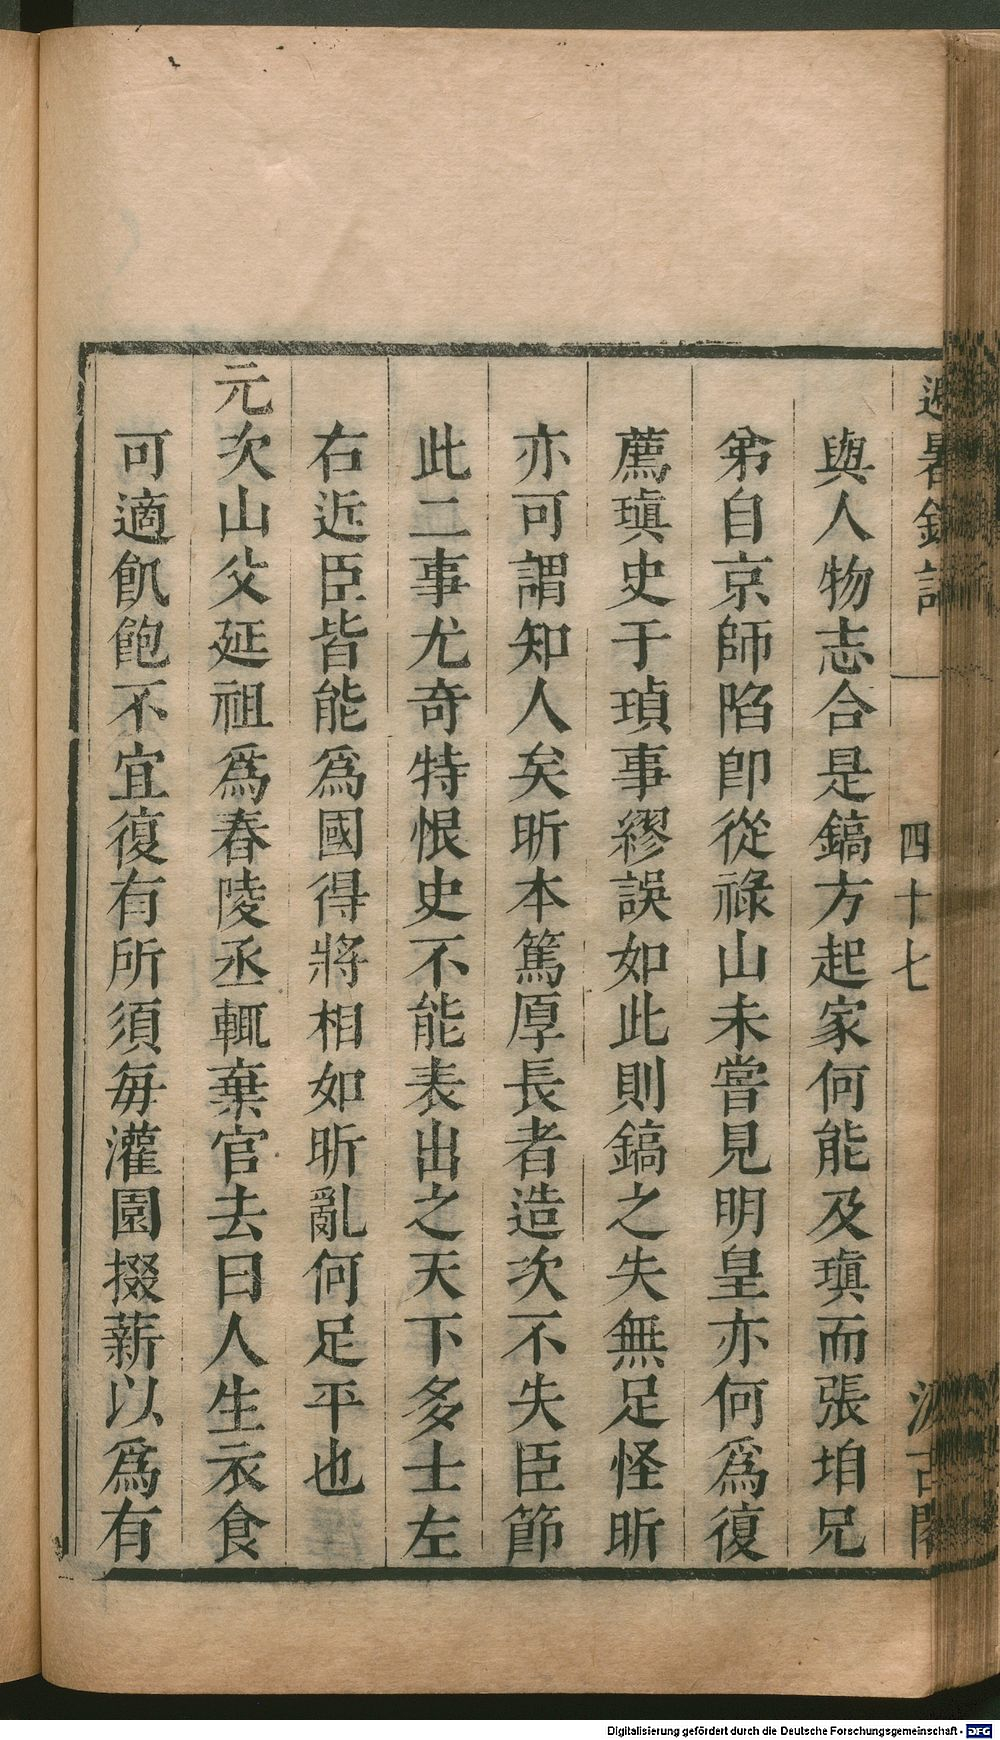 避暑錄話
四十七
汲古閣
與人物志合是鎬方起家何能及瑱而張垍兄
弟自京師陷卽從祿山未嘗見明皇亦何爲復
薦瑱史于瑱事繆誤如此則鎬之失無足怪昕
亦可謂知人矣昕本篤厚長者造次不失臣節
此二事尤奇特恨史不能表出之天下多士左
右近臣皆能爲國得將相如昕亂何足平也
元次山父延祖爲舂陵丞輒棄官去曰人生衣食
可適飢飽不宜復有所須每灌園掇薪以爲有
Digitalisierung gefördert durch die Deutsche Forschungsgemeinschaft - DFG